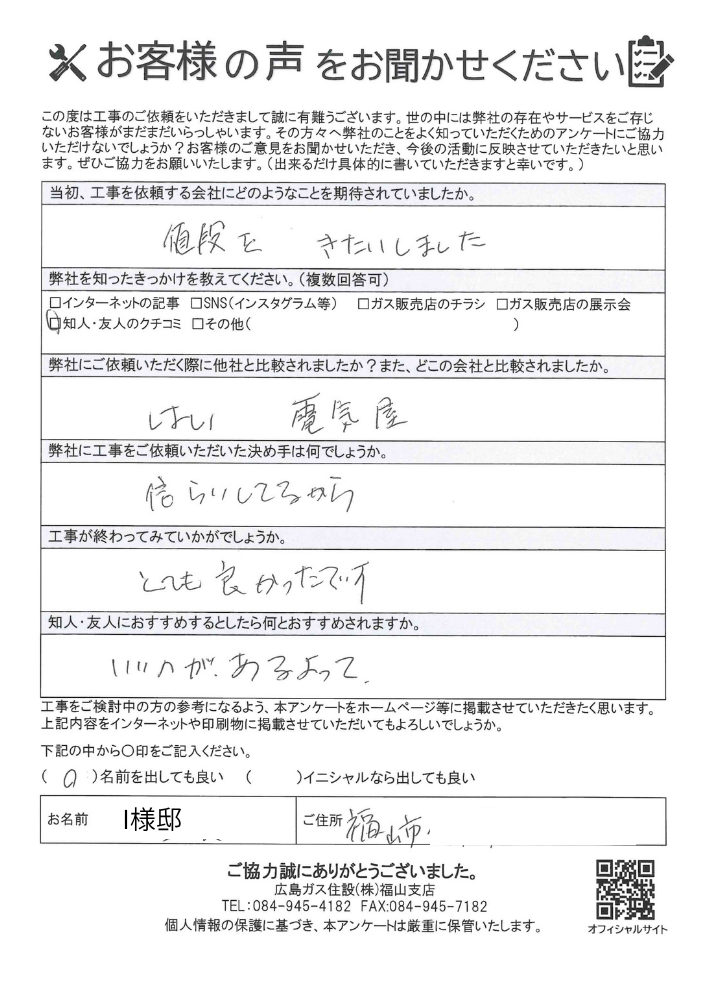 お客様の声をお聞かせください
この度は工事のご依頼をいただきまして誠に有難うございます。世の中には弊社の存在やサービスをご存じ
ないお客様がまだまだいらっしゃいます。その方々へ弊社のことをよく知っていただくためのアンケートにご協力
いただけないでしょうか？お客様のご意見をお聞かせいただき、今後の活動に反映させていただきたいと思い
ます。ぜひご協力をお願いいたします。（出来るだけ具体的に書いていただきますと幸いです。）
当初、工事を依頼する会社にどのようなことを期待されていましたか。
値段を きたいしました
弊社を知ったきっかけを教えてください。（複数回答可）
□インターネットの記事 □SNS（インスタグラム等） □ガス販売店のチラシ □ガス販売店の展示会
□知人・友人のクチコミ □その他（ ）
弊社にご依頼いただく際に他社と比較されましたか？また、どこの会社と比較されましたか。
はい 電気屋
弊社に工事をご依頼いただいた決め手は何でしょうか。
信らいしてるから
工事が終わってみていかがでしょうか。
とても良かったです
知人・友人におすすめするとしたら何とおすすめされますか。
いい人が、あるよって。
工事をご検討中の方の参考になるよう、本アンケートをホームページ等に掲載させていただきたく思います。
上記内容をインターネットや印刷物に掲載させていただいてもよろしいでしょうか。
下記の中から〇印をご記入ください。
（ ○ ）名前を出しても良い （ ）イニシャルなら出しても良い
お名前 I様邸 ご住所 福山市
ご協力誠にありがとうございました。
広島ガス住設(株)福山支店
TEL：084-945-4182 FAX:084-945-7182
個人情報の保護に基づき、本アンケートは厳重に保管いたします。
オフィシャルサイト